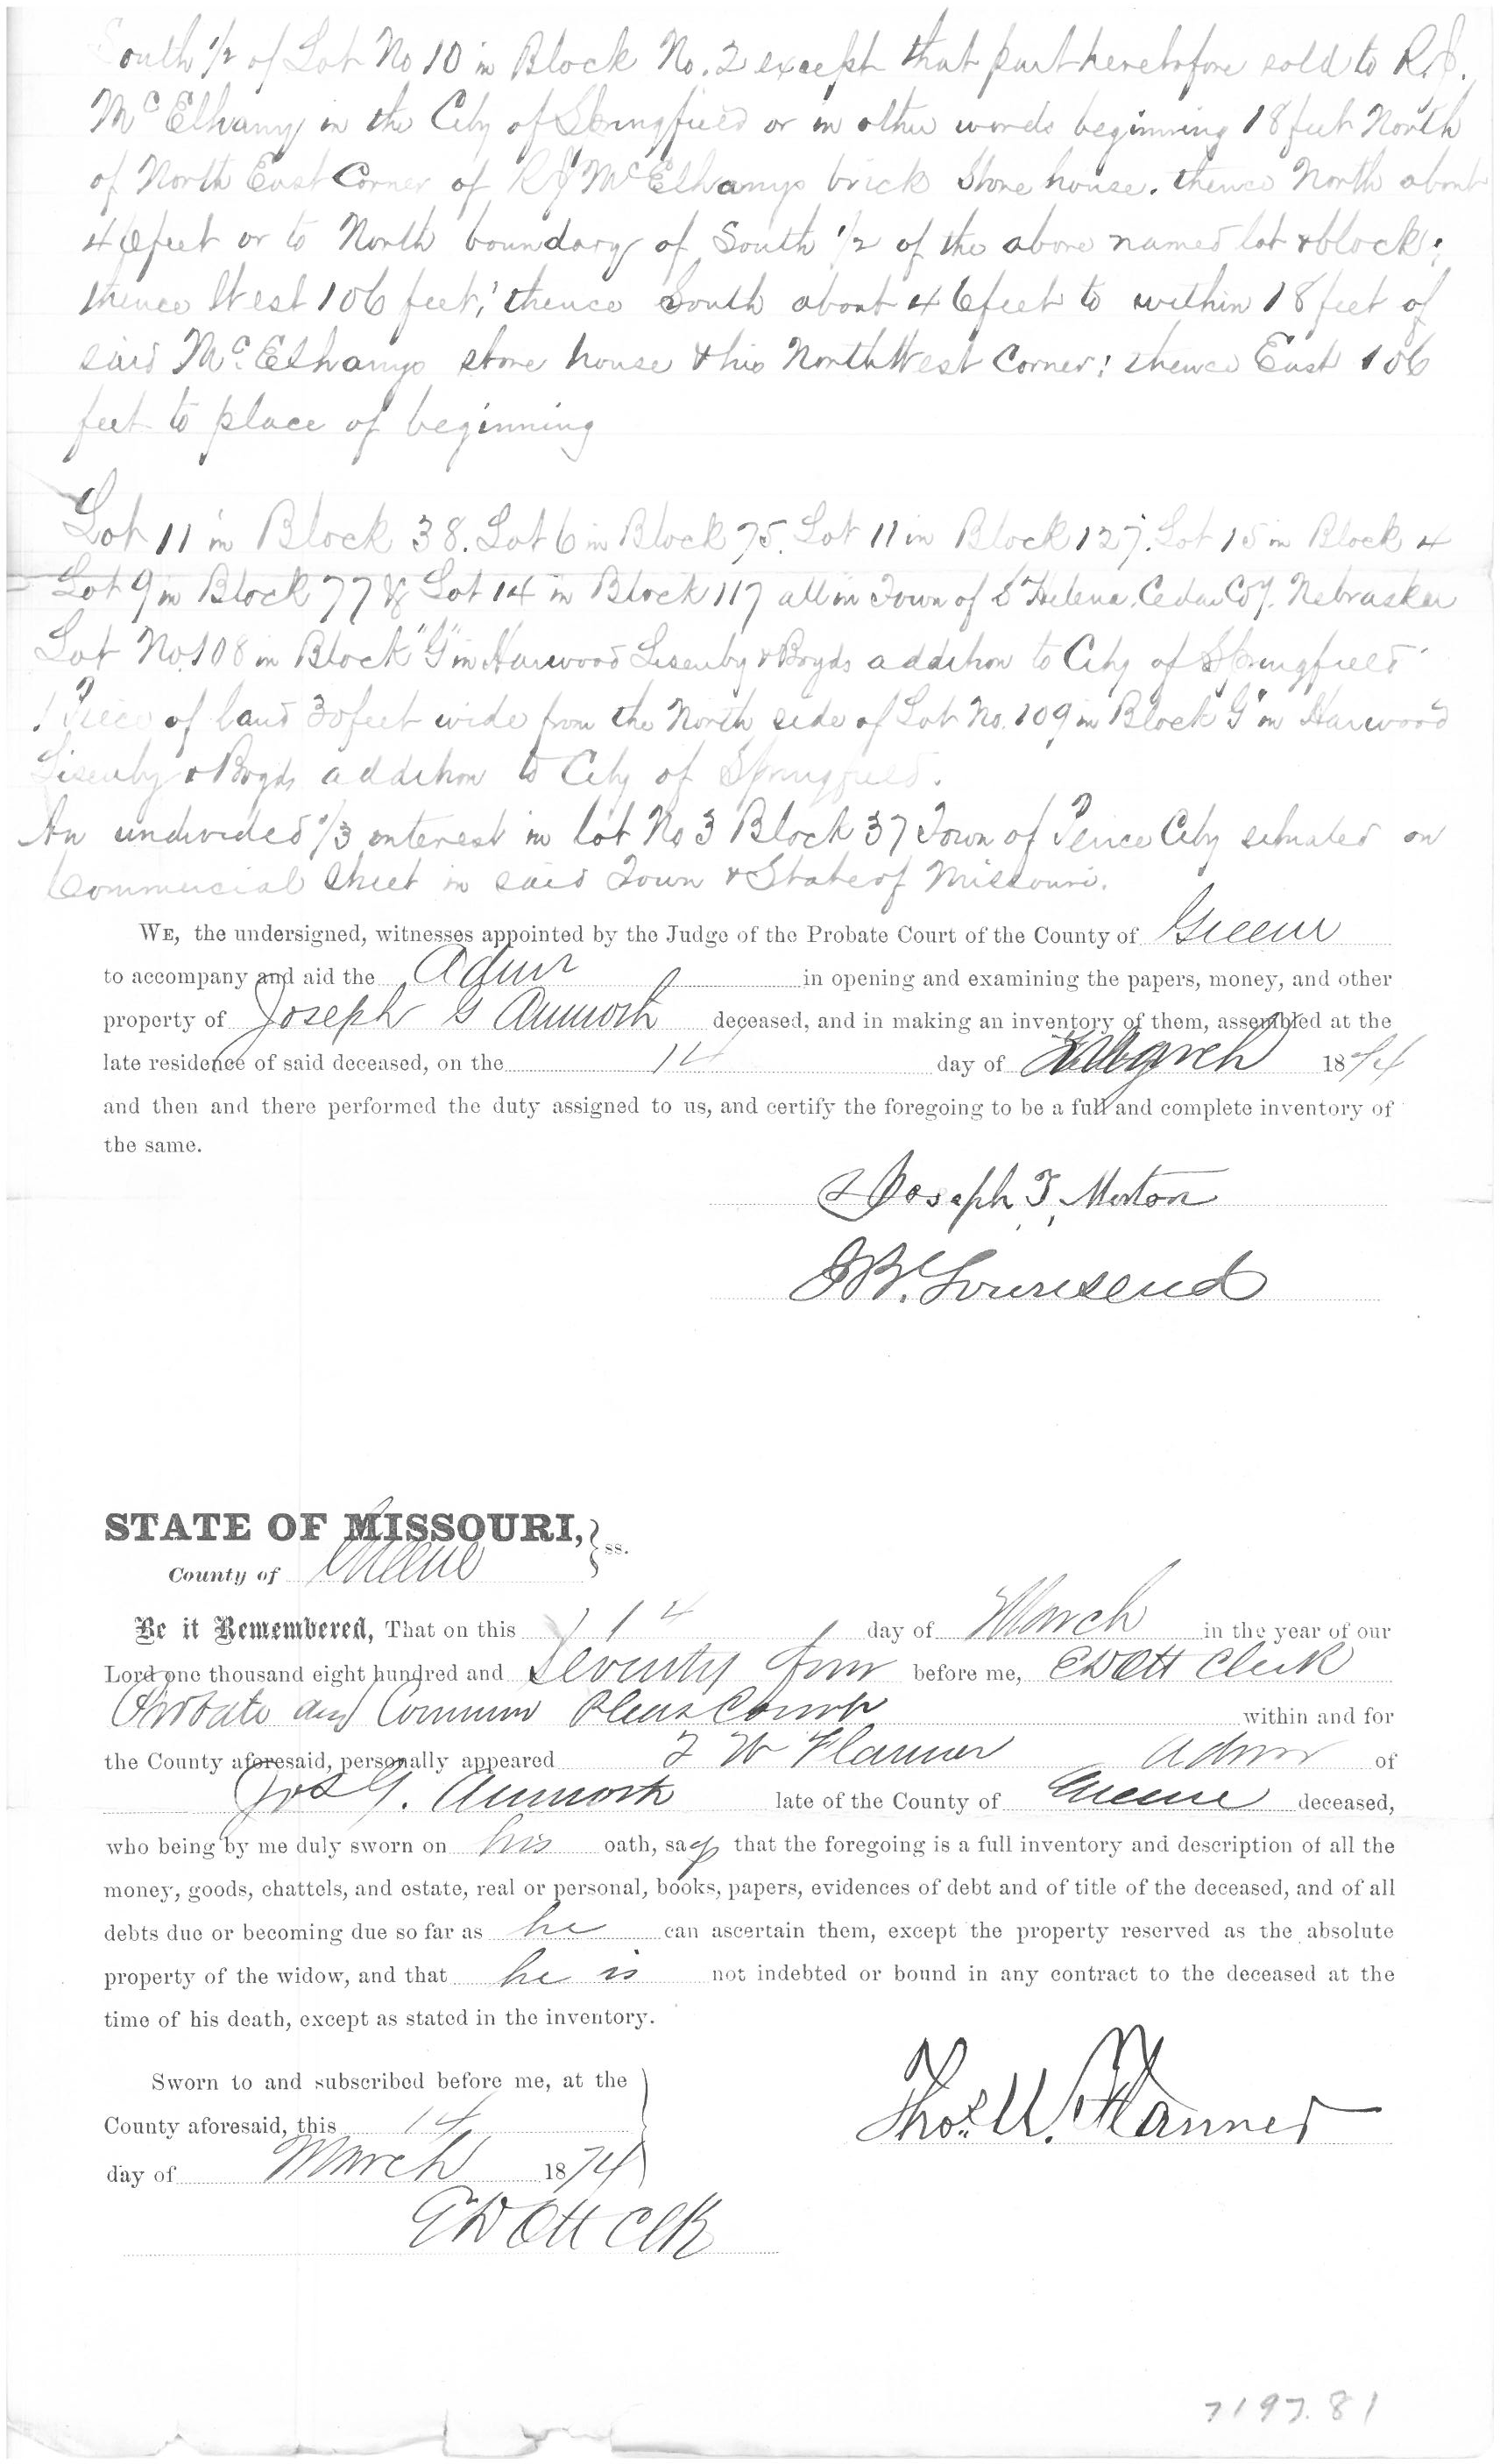 South 1/2 of Lot No 10 in Block No. 2 except that part heretofore sold to R.J.
McElhany in the City of Springfield or in other words beginning 18 feet North
of North East Corner of RJ McElhanys brick Store house. thence North about
46 feet or to North boundary of South 1/2 of the above named lot & block;
thence West 106 feet; thence South about 46 feet to within 18 feet of
said McElhanys store house & his North West Corner; thence East 106
feet to place of beginning
Lot 11 in Block 38. Lot 6 in Block 75. Lot 11 in Block 127. Lot 15 in Block 4
Lot 9 in Block 77 & Lot 14 in Block 117 all in Town of St Helena. Cedar Coy. Nebraska
Lot No. 108 in Block "G" in Harwood Lisenby & Boyds addition to City of Springfield
1 Piece of land 30 feet wide from the North side of Lot No. 109 in Block "G" in Harwood
Lisenby & Boyds addition to City of Springfield.
An undivided 1/3 interest in lot No 3 Block 37 Town of Peirce City situated on
Commercial Street in said Town & State of Missouri.
WE, the undersigned, witnesses appointed by the Judge of the Probate Court of the County of Greene
to accompany and aid the Admr in opening and examining the papers, money, and other
property of Joseph G deceased, and in making an inventory of them, assembled at the
late residence of said deceased, on the 14 day of March 1874
and then and there performed the duty assigned to us, and certify the foregoing to be a full and complete inventory of
the same.
Joseph T. Morton
J B. Townsend
STATE OF MISSOURI, } ss.
County of Greene
Be it Remembered, That on this 14 day of March in the year of our
Lord one thousand eight hundred and Seventy four before me, E D Ott Clerk
Probate and Common Pleas Court within and for
the County aforesaid, personally appeared T W Flanner Admr of
Jos G. late of the County of Greene deceased,
who being by me duly sworn on his oath, says that the foregoing is a full inventory and description of all the
money, goods, chattels, and estate, real or personal, books, papers, evidences of debt and of title of the deceased, and of all
debts due or becoming due so far as he can ascertain them, except the property reserved as the absolute
property of the widow, and that he is not indebted or bound in any contract to the deceased at the
time of his death, except as stated in the inventory.
Sworn to and subscribed before me, at the
County aforesaid, this 14
day of March 1874
Thos. W. Flanner
E D Ott Clk
7197.81